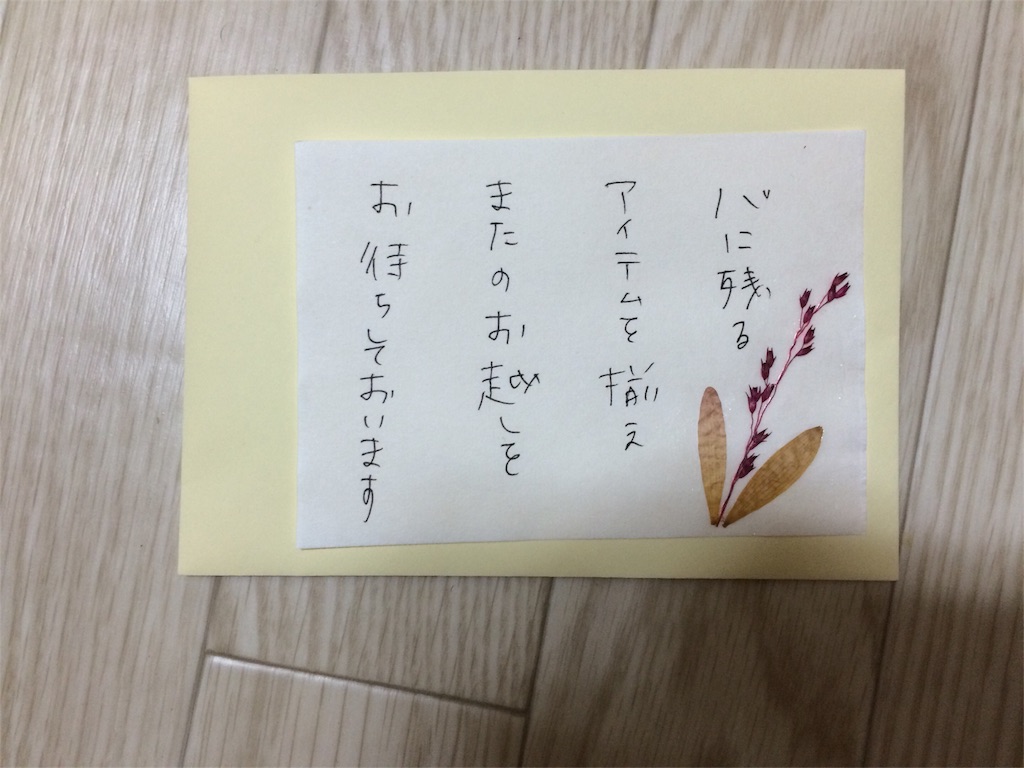 心に残る
アイテムを揃え
またのお越しを
お待ちしております